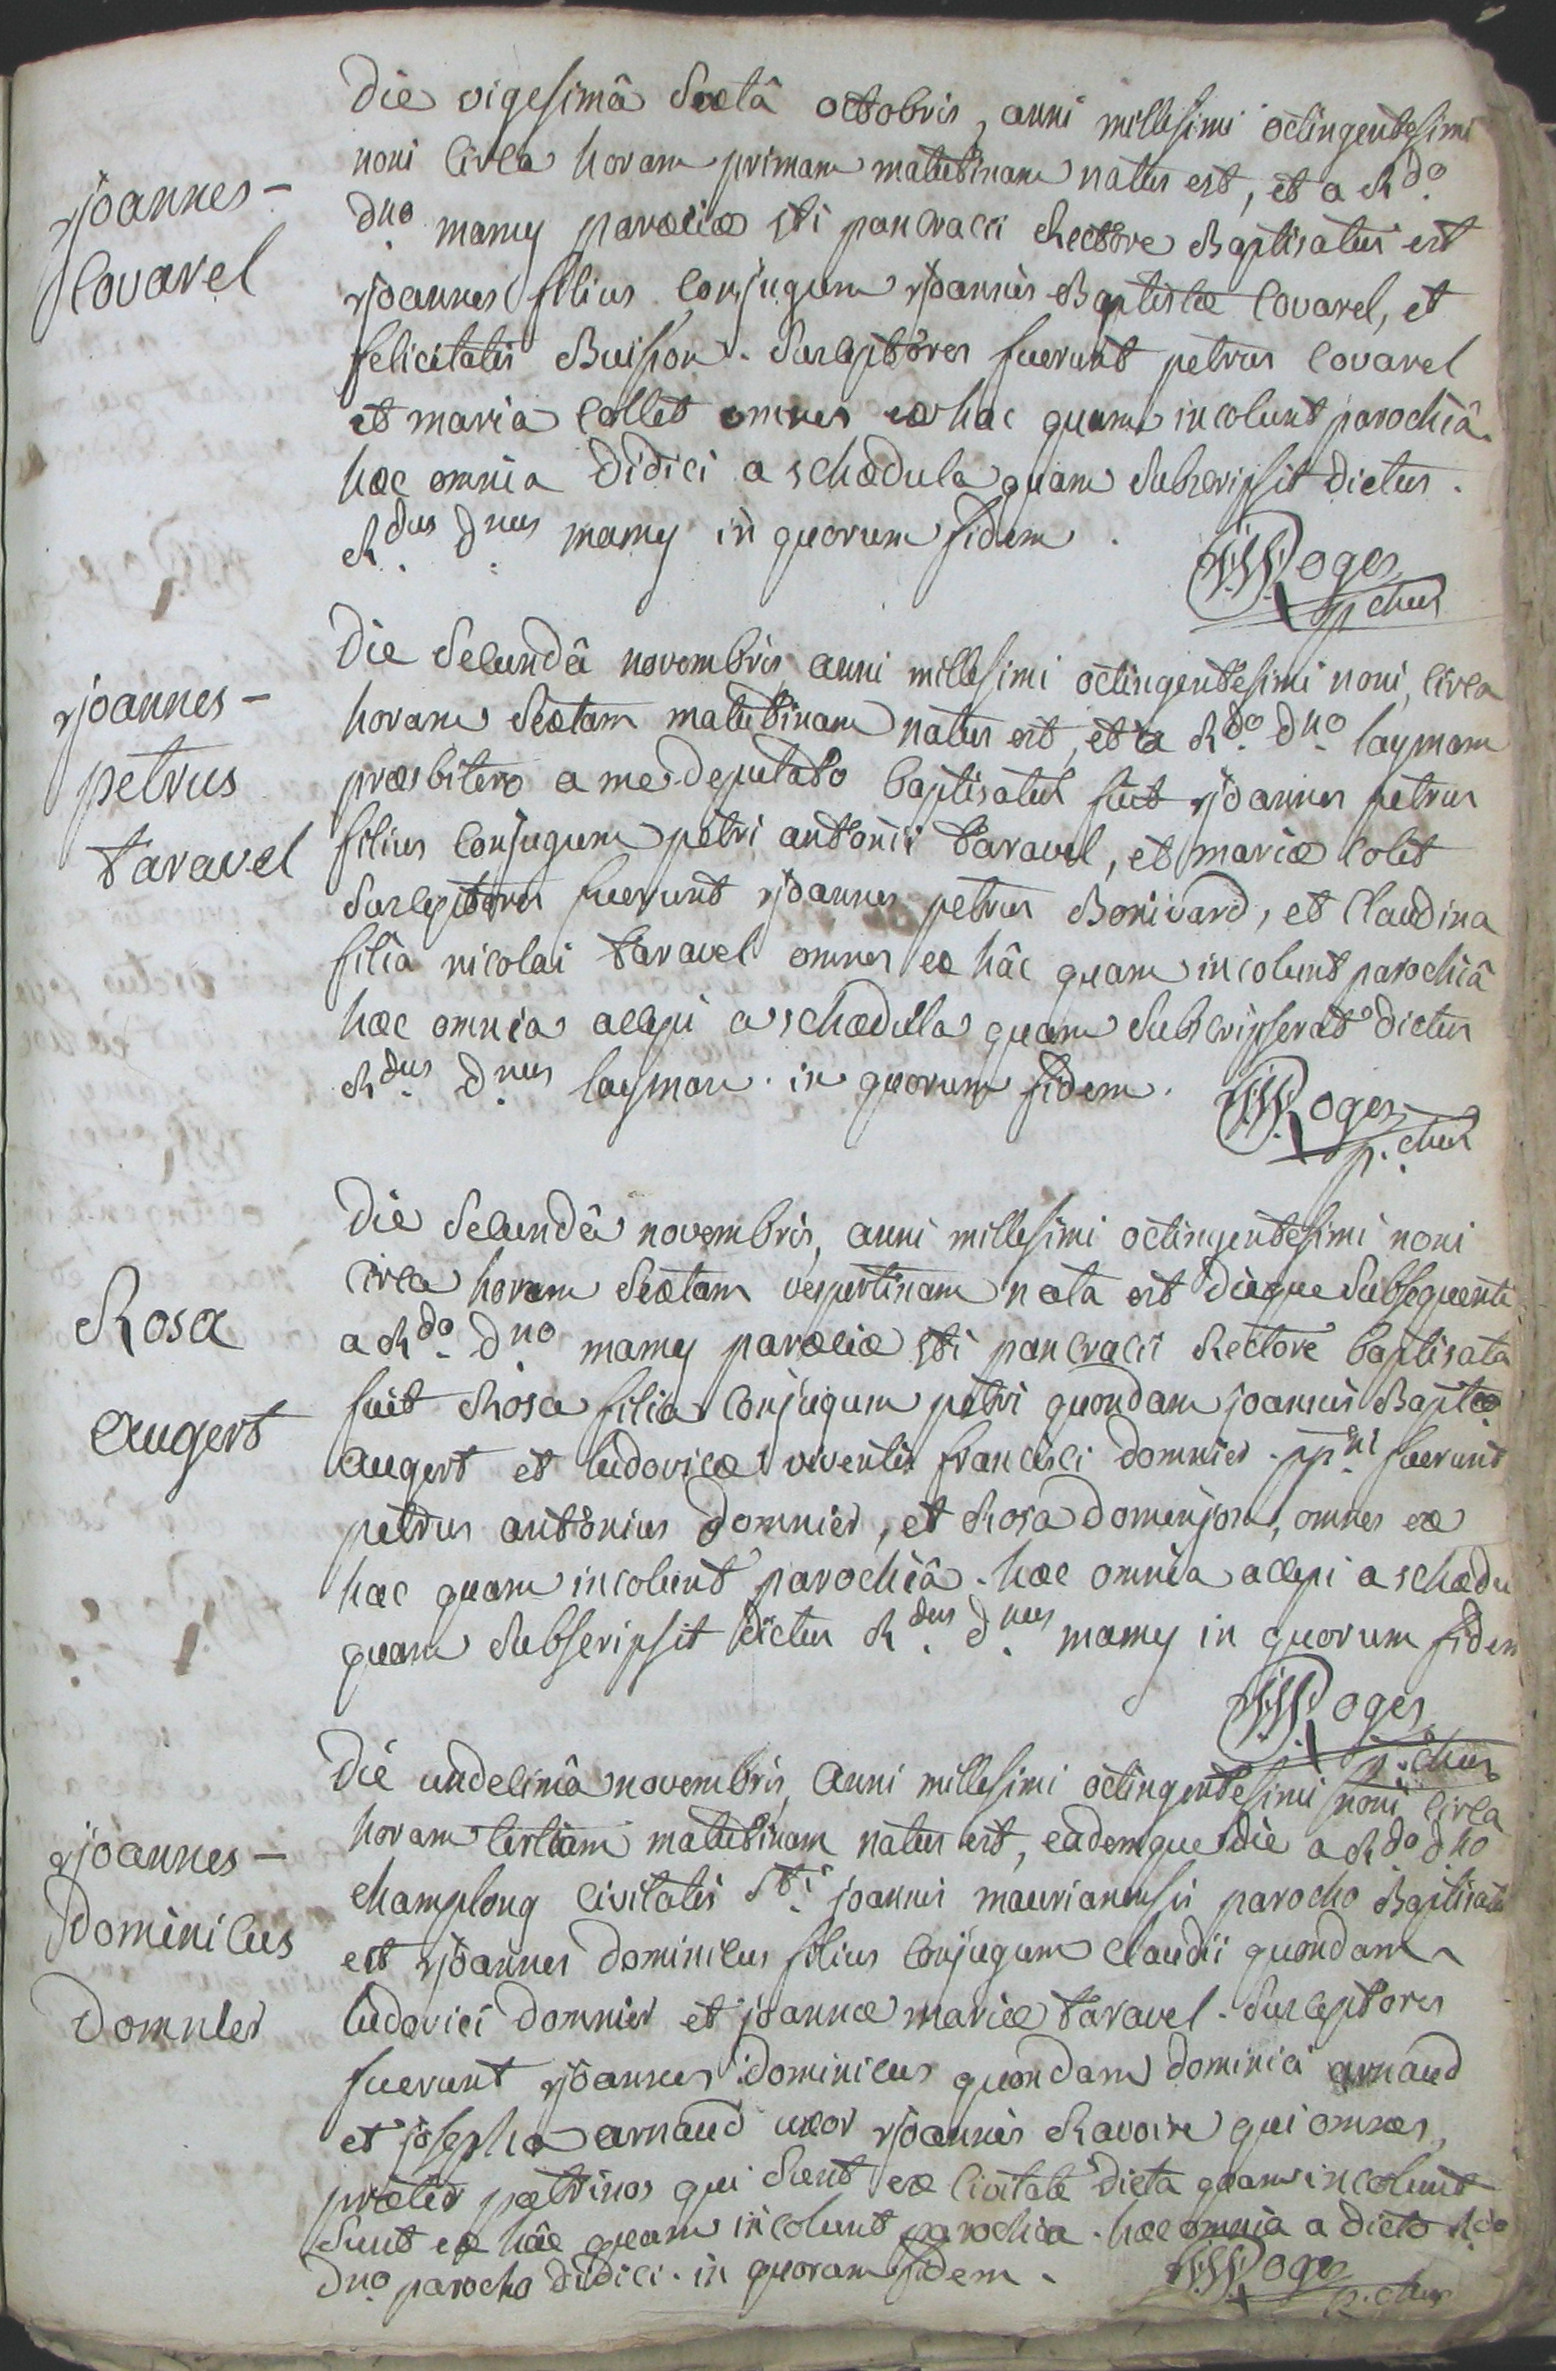 Die vigesimâ Sextâ octobris, anni millesimi octingentesimi
noni Circa horam primam matutinam natus est, et a Rdo.
joannes-
dno. mamy parœciæ sti pancracii Rectore Baptisatus est
Covarel
joannes filius Conjugum joannis-Baptistæ Covarel, et
felicitatis Buisson. Susceptores fuerunt petrus Covarel
et maria Collet omnes ex hac quam incolunt parochiâ.
hæc omnia Didici a schædula quam Subscripsit dictus.
Rdus. dnus. mamy in quorum fidem.
Roges
p.chus
Die Secundâ novembris, anni millesimi octingentesimi noni, Circa
joannes-
horam Sextam matutinam natus est, et a Rdo. dno. laymon
petrus
præsbitero a me Deputato baptisatus fuit joannes petrus
taravel
filius Conjugum petri antonii taravel, et mariæ Colet
Susceptores fuerunt joannes petrus Bonivard, et Claudina
filia nicolai taravel omnes ex hâc quam incolunt parochiâ
hæc omnia accepi a schædula quam Subscripserat dictus
Rdus. dnus. laymon. in quorum fidem.
Roges
p.chus
Die Secundâ novembris, anni millesimi octingentesimi noni
Circa horam Sextam vespertinam nata est dieque Subsequenti
Rosa
a Rdo. dno. mamy parœciæ sti pancracii Rectore baptisata
fuit Rosa filia Conjugum petri quondam joannis Baptæ
Augert
Augert et ludovicæ viventis francisci domnier. ppni. fuerunt
petrus antonius Domnier, et Rosa domenjon, omnes ex
hac quam incolunt parochiâ. hæc omnia accepi a schædu
quam Subscripsit dictus Rdus. dnus. mamy in quorum fidem
Roges
p.chus
Die undecimâ novembris, Anni millesimi octingentesimi noni Circa
horam tertiam matutinam natus est, eademque die a Rdo dno
joannes-
champlong Civitatis Sti. joannis maurianensis parocho Baptisatus
Dominicus
est joannes Dominicus filius Conjugum Claudii quondam
Domnier
ludovici Domnier et joannæ mariæ taravel. Susceptores
fuerunt joannes Dominicus quondam dominici arnaud
et josepha arnaud uxor joannis Ravoire qui omnes,
præter patrinos qui Sunt ex Civitate dicta quam incolunt
Sunt ex hâc quam incolunt parochia. hæc omnia a dicto Rdo
Dno. parocho didici. in quorum fidem.
Roges
p.chus